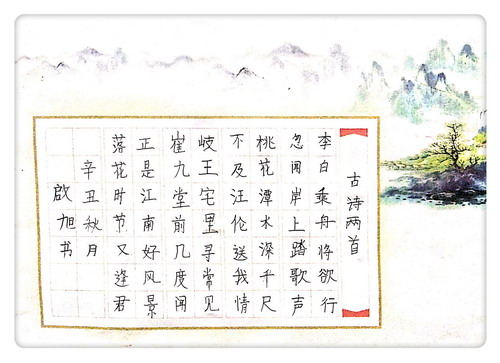 古诗两首
李白乘舟将欲行
忽闻岸上踏歌声
桃花潭水深千尺
不及汪伦送我情
岐王宅里寻常见
崔九堂前几度闻
正是江南好风景
落花时节又逢君
辛丑秋月
启旭书